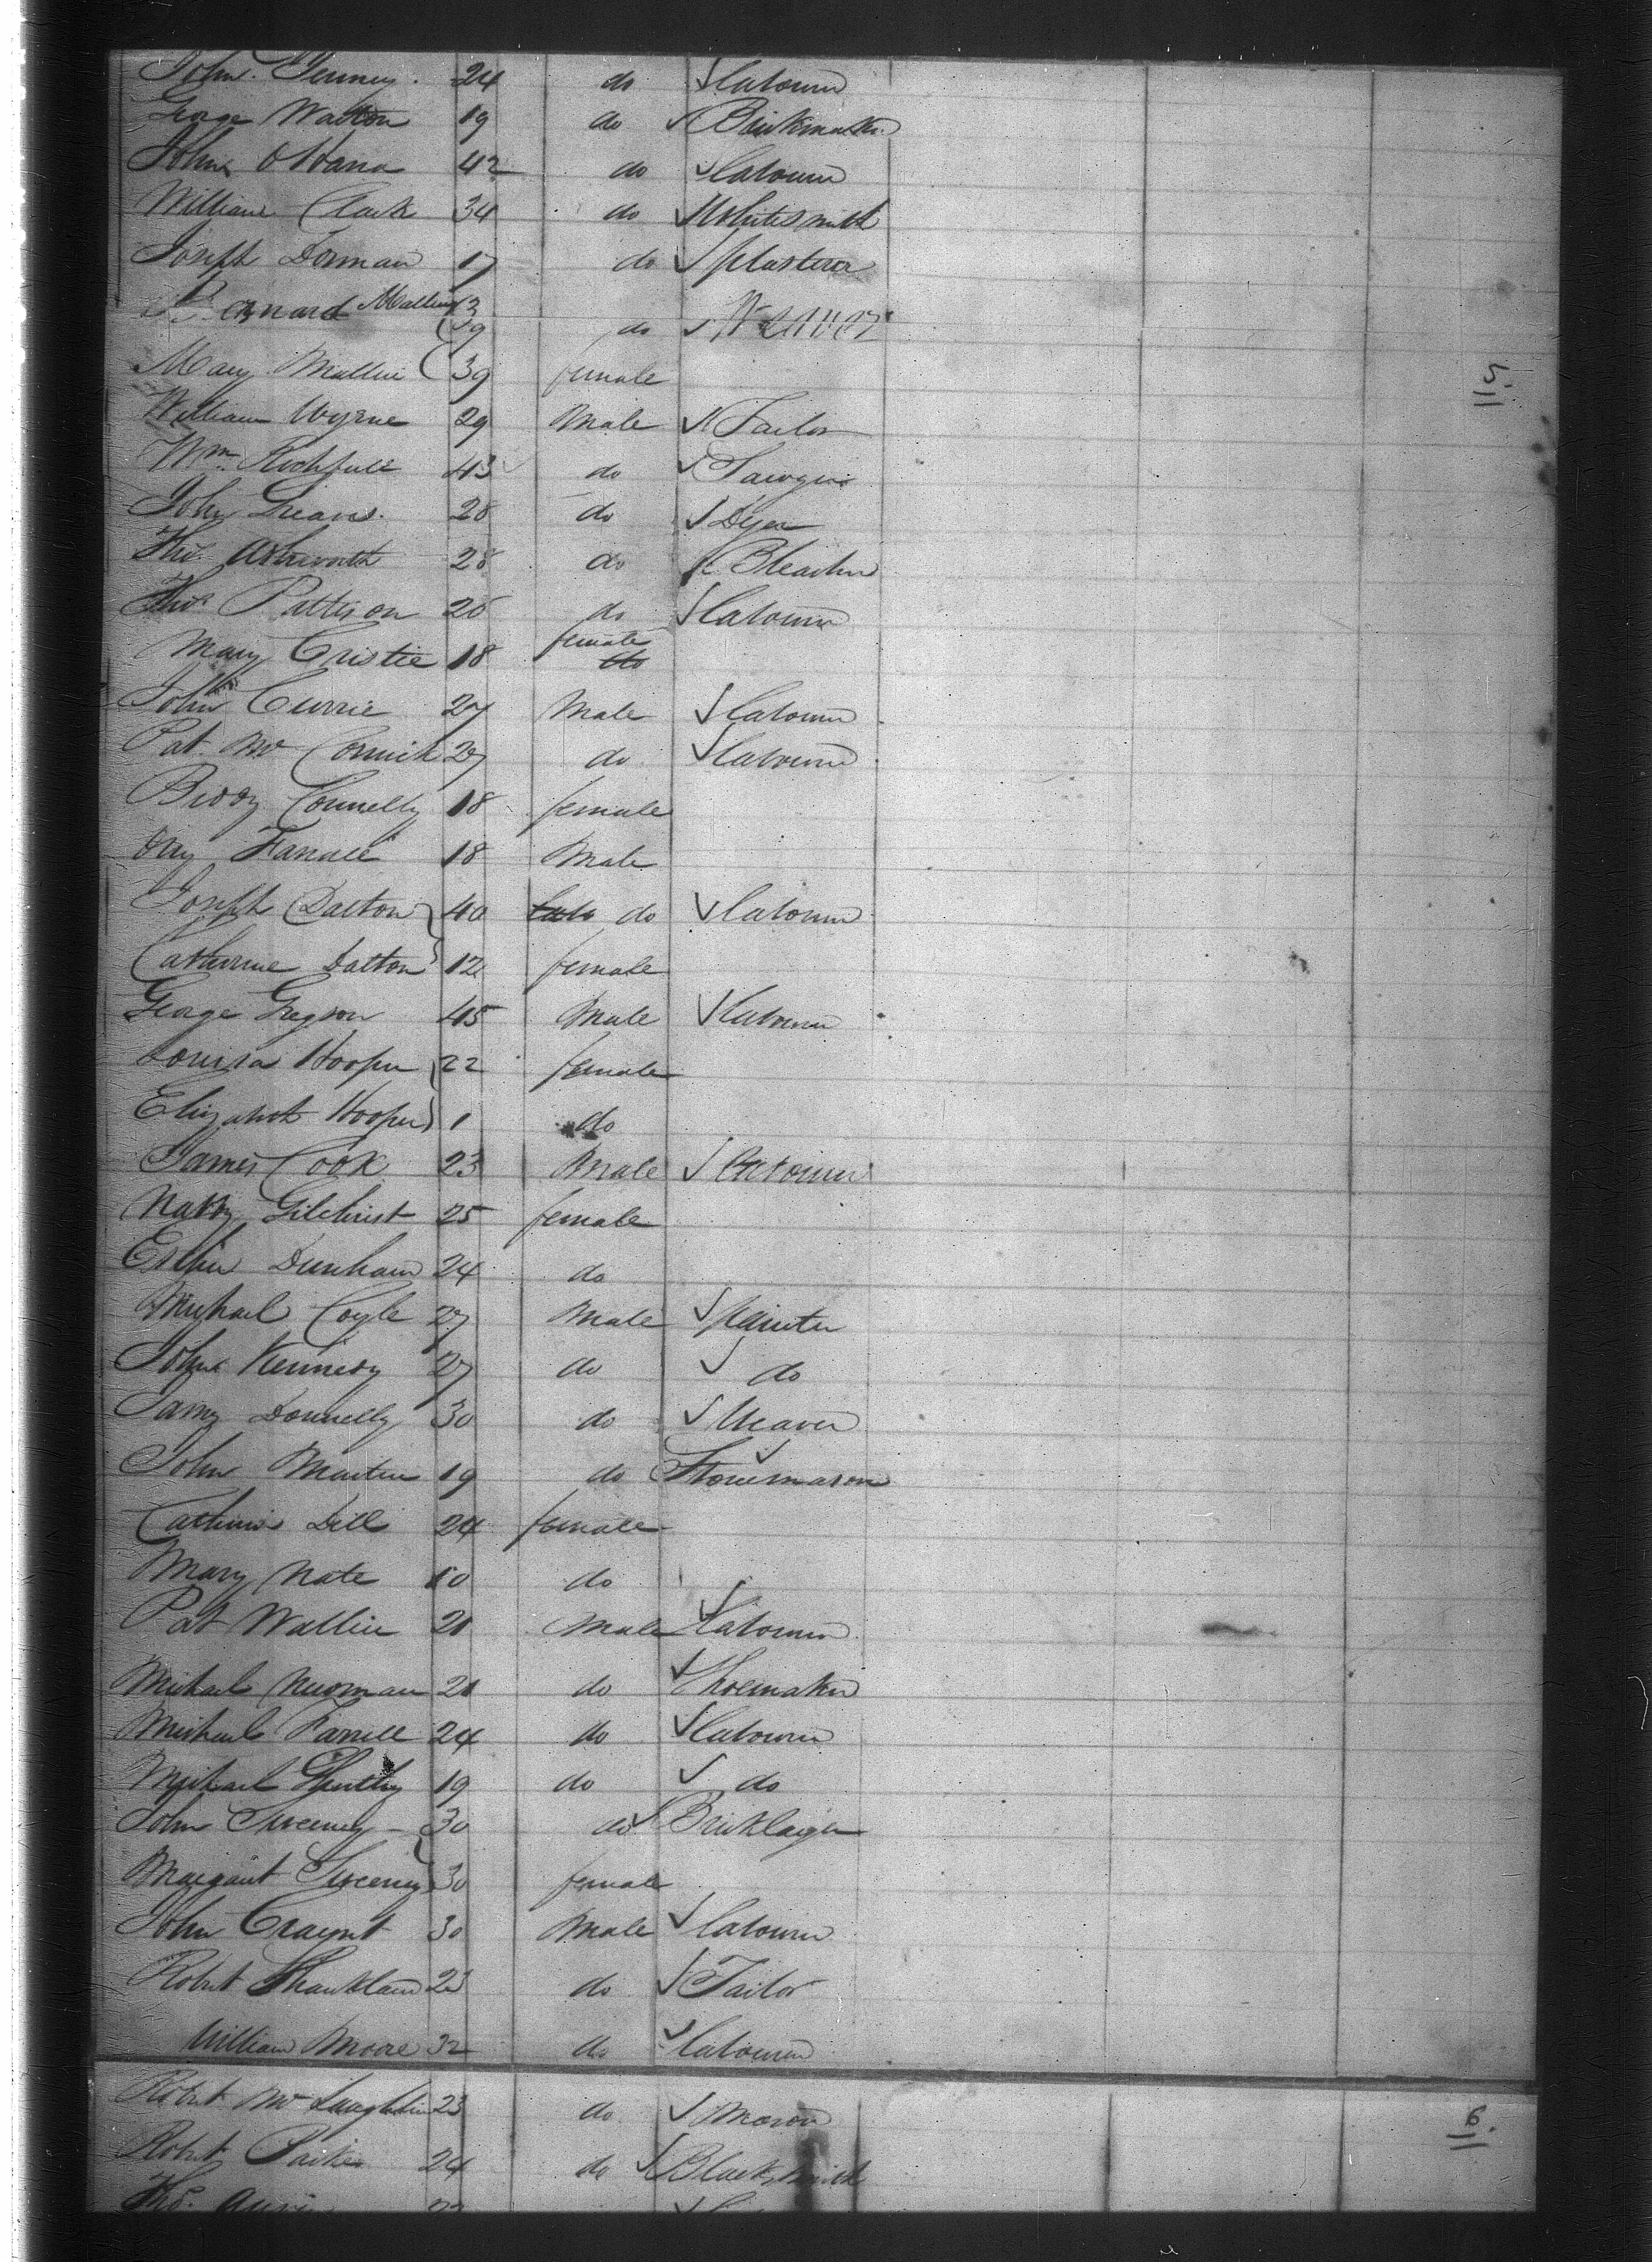 John Tenney 24 do Labourer
George Walton 19 do Brickmaker
John OHara 42 do Labourer
William Clark 34 do Whitesmith
Joseph Dorman 17 do plasterer
Bernard Mallin 39 do Weaver
Mary Mallin 39 female
William Wyrne 29 Male Tailor
Wm 43 do Sawyer
John 28 do Dyer
Thos Ashworth 28 do Bleacher
Thos Pattison 26 do Labourer
Mary Cristie 18 female
John Currie 27 Male Labourer
Pat Mc Cormick 27 do Labourer
Biddy Connelly 18 female
Farrell 18 Male
Joseph Dalton 40 do Labourer
Catherine Dalton 12 female
George Gregson 45 Male Labourer
Louisa Hooper 22 female
Elizabeth Hooper 1 do
James Cook 23 Male Labourer
Gilchrist 25 female
Esther Dunham 24 do
Michael Coyle 27 Male painter
John Kennedy 27 do do
James Donnelly 30 do Weaver
John Martin 19 do Stonemason
Catherine Dill 24 female
Mary Nate 10 do
Pat Wallin 20 Male Labourer
Michael Newman 20 do Shoemaker
Michael Farrell 24 do Labourer
Michael 19 do do
John Sweeney 30 do Bricklayer
Margaret Sweeney 30 female
John 30 Male Labourer
Robert Shankland 23 do Tailor
William Moore 32 do Labourer
Robert Mc Laughlin 23 do Mason
Robert Parker 24 do Blacksmith
Thos.
5
6.